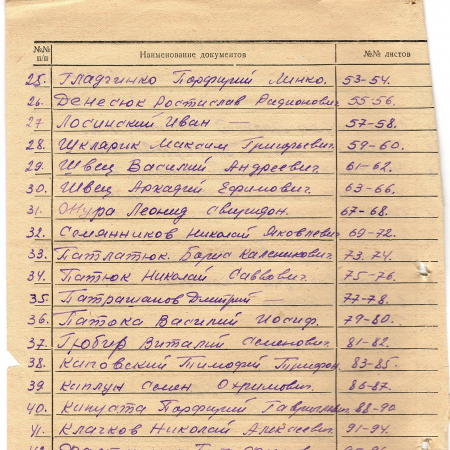 №№ п/п Наименование документов №№ листов
25. Гладченко Порфирий Минко. 53-54.
26. Денесюк Ростислав Радионович 55-56.
27 Лосинский Иван — 57-58.
28. Шкларик Максим Григорьевич. 59-60.
29. Швец Василий Андреевич. 61-62.
30. Швец Аркадий Ефимович. 63-66.
31. Леонид 67-68.
32. Семянников Николай Яковлевич 69-72.
33. Патлатюк. Барис Каленикович 73.74.
34. Патюк Николай Саввович. 75-76.
35. Патрашанов Дмитрий — 77-78.
36. Патока Василий Иосиф. 79-80.
37. Виталий Семенович. 81-82.
38. Тимофей Трифон. 83-85.
39 Каплун Семен Охримович. 86-87.
40. Капуста Порфирий 88-90
41. Клачков Николай Алексеевич. 91-94.